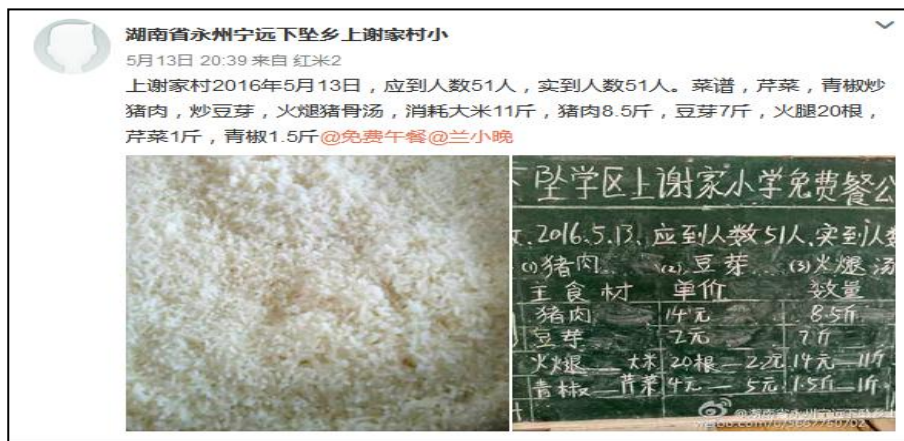 湖南省永州宁远下坠乡上谢家村小
5月13日 20:39 来自 红米2
上谢家村2016年5月13日，应到人数51人，实到人数51人。菜谱，芹菜，青椒炒
猪肉，炒豆芽，火煺猪骨汤，消耗大米11斤，猪肉8.5斤，豆芽7斤，火腿20根，
芹菜1斤，青椒1.5斤@免费午餐@兰小晚
坠学区上谢家小学免费餐公
2016.5.13. 应到人数51人, 实到人数
(1)猪肉 (2)豆芽 (3)火煺汤
主食材 单价 数量
猪肉 14元 8.5斤
豆芽 2元 7斤
火煺 大米 20根 2.2元 14元 11斤
青椒 芹菜 4元 5元 1.5斤 1斤
@湖南省永州宁远下坠乡上